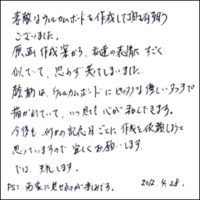 素敵なウェルカムボードを作成して頂き有難う
ございました。
原画作成案から、友達の表情、すごく
似ていて、思わず笑ってしまいました。
はウェルカムボードにピッタリな優しいタッチで
描かれていて、いつ見ても心が和んできます。
今後も何かの記念日ごとに作成を依頼しようと
思っていますので宜しくお願いします
では、失礼します。
PS: 両家に見せるのが楽しみです。 2012.4.28.